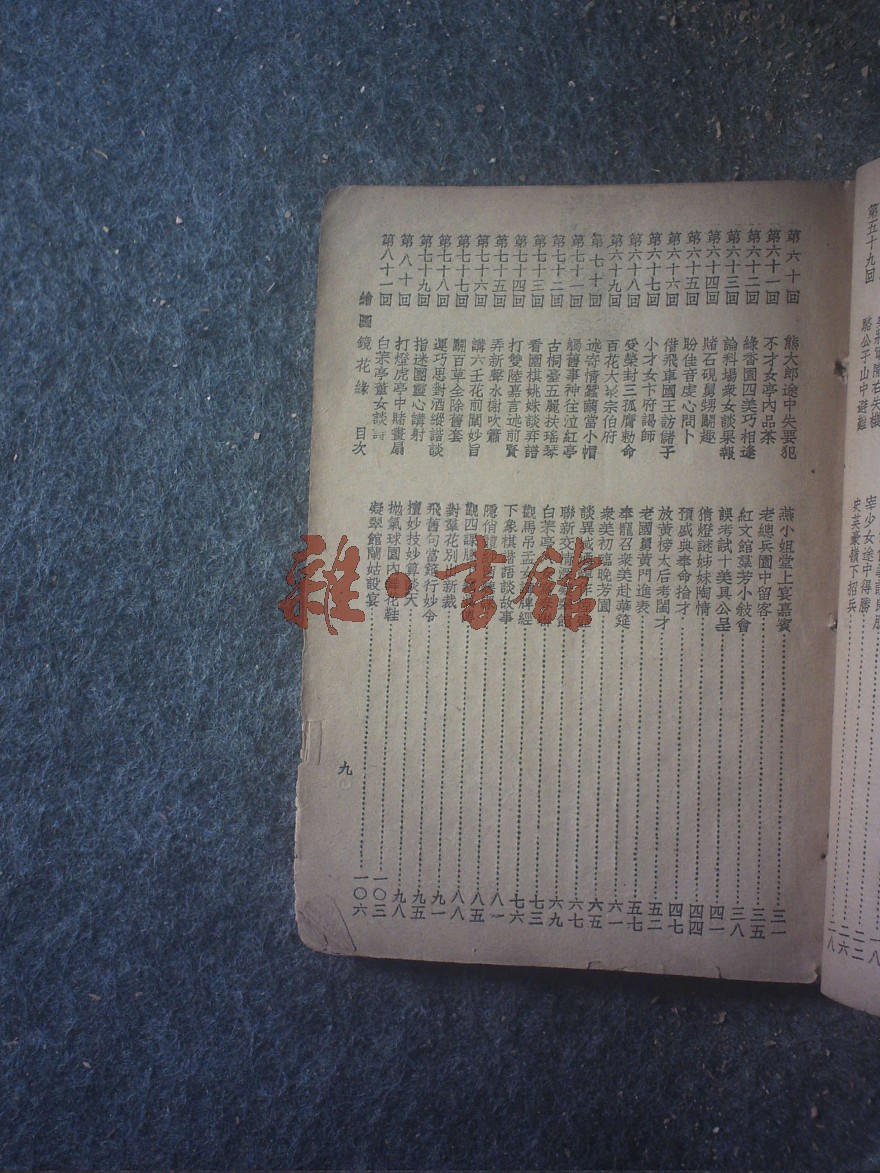 第五十九回 駱公子山中避難 史英豪嶺下招兵 二八
宰少女途中得勝 二六
第六十回 熊大郎途中失要犯 燕小姐堂上宴嘉賓 三一
第六十一回 不才女亭內品茶 老總兵園中留客 三五
第六十二回 綠香園四美巧相逢 紅文館羣芳小敍會 三八
第六十三回 論科場衆女談果報 誤考試十美具公呈 四一
第六十四回 賭石硯舅甥鬬趣 猜燈謎姊妹陶情 四四
第六十五回 盼佳音虔心問卜 預盛典奉命掄才 四七
第六十六回 借飛車國王訪儲子 放黃榜太后考閨才 五二
第六十七回 小才女卞府謁師 老國舅黃門進表 五七
第六十八回 受榮封三孤膺勅命 奉寵召衆美赴華筵 六一
第六十九回 百花大聚宗伯府 衆美初臨晚芳園 六五
第七十回 述奇情蠶繭當小帽 談異 六七
第七十一回 觸舊事神往泣紅亭 聯新交情 六九
第七十二回 古桐臺五麗扶瑤琴 白茉亭 七三
第七十三回 看圍棋姚姝談弈譜 觀馬吊孟 牌經 七六
第七十四回 打雙陸嘉言述前賢 下象棋諧語談故事 八一
第七十五回 弄新聲水榭吹簫 隱俏 八五
第七十六回 講六壬花前闡妙旨 觀四課 八八
第七十七回 鬬百草全除舊套 對羣花別 新裁 九一
第七十八回 運巧思對酒縱諧談 飛舊句當筵行妙令 九五
第七十九回 指迷團靈心講射 擅妙技妙算談天 九八
第八十回 打燈虎亭中賭畫扇 拋氣球園內 花鞋 一〇三
第八十一回 白茉亭董女談詩 凝翠館蘭姑設宴 一〇六
繪圖鏡花緣 目次 九
雜·書館